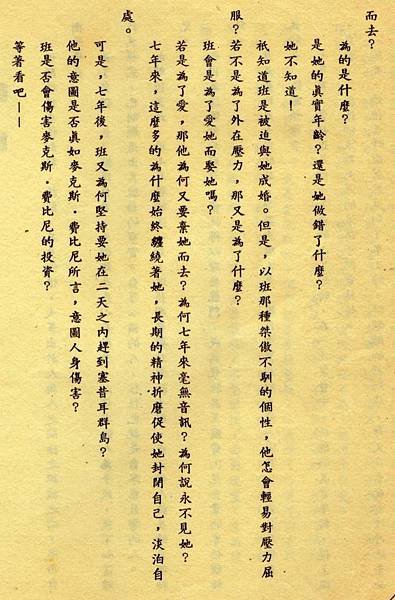 而去？
為的是什麼？
是她的真實年齡？還是她做錯了什麼？
她不知道！
祇知道班是被迫與她成婚。但是，以班那種桀傲不馴的個性，他怎會輕易對壓力屈
服？若不是為了外在壓力，那又是為了什麼？
班會是為了愛她而娶她嗎？
若是為了愛，那他為何又要棄她而去？為何七年來毫無音訊？為何說永不見她？
七年來，這麼多的為什麼始終纏繞著她，長期的精神折磨促使她封閉自己，淡泊自
處。
可是，七年後，班又為何堅持要她在二天之內趕到塞昔耳群島？
他的意圖是否真如麥克斯．費比尼所言，意圖人身傷害？
班是否會傷害麥克斯．費比尼的投資？
等著看吧——